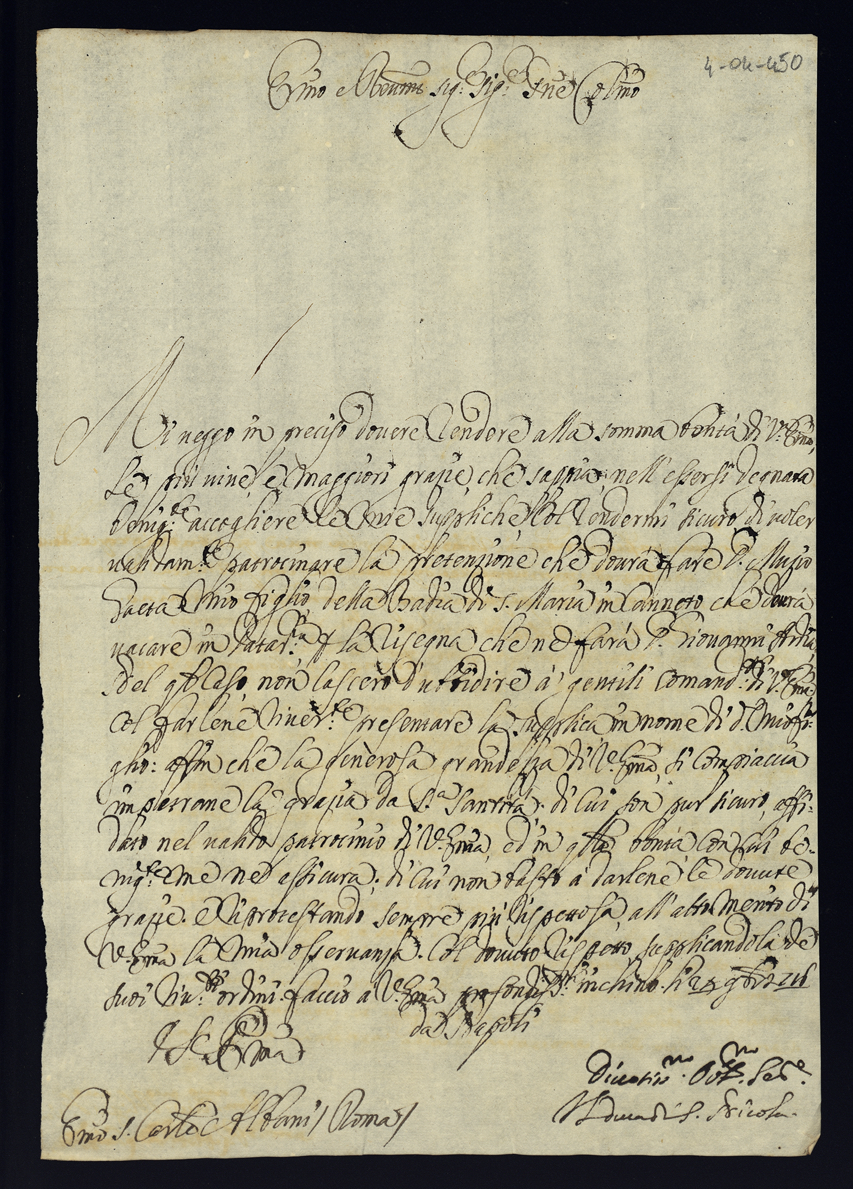 4-04-450
Em̃o e Rev.mo sig.r Sig.r Pñe Col.mo
Mi veggo in preciso dovere rendere alla somma bontà di V. Em̃a,
Le più vive, e maggiori grazie, che sappia, nell'essersi degnata
benig.te accogliere le mie suppliche col rendermi sicuro di voler
validam.te patrocinare la pretenzione che dovrà fare D. Muzio
Gaeta mio figlio della Badia di S. Maria in Canneto che dovrà
vacare in Datar.a la risegna che ne farà D. Giovanni
Del q̃l caso non lascerò d'ubbidire à i gentili comand.ti di V. Em̃a
col farlene river.te presentare la supplica in nome di d.o mio fi-
glio: affin che la generosa grandezza di V. Em̃a, si compiaccia
impetrarne la grazia da S.a Santità: di cui son pur sicuro, affi-
dato nel valido patrocinio di V. Em̃a, ed in q̃lla bontà con cui be-
nig.te me ne assicura; di cui non basto à darlene le dovute
grazie. e riprotestando sempre più rispettosa all'alto merito di
V. Em̃a la mia osservanza. Col dovuto rispetto, supplicandola de
suoi riv.ti ordini faccio à V. Em̃a profondiss.o inchino. li 28 9bre 1718
da Napoli
D. V. Em̃a
Divotis.mo Obl.mo Ser.e
Il Duca di S. Nicola
Em̃o S. Card.e Albani / Roma /